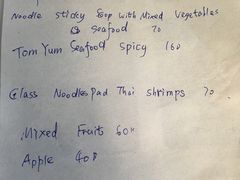 Noodle sticky Soup with Mixed Vegetables
& seafood 70
Tom Yum Seafood Spicy 160
Glass Noodles Pad Thai Shrimps 70
Mixed Fruits 60
Apple 40